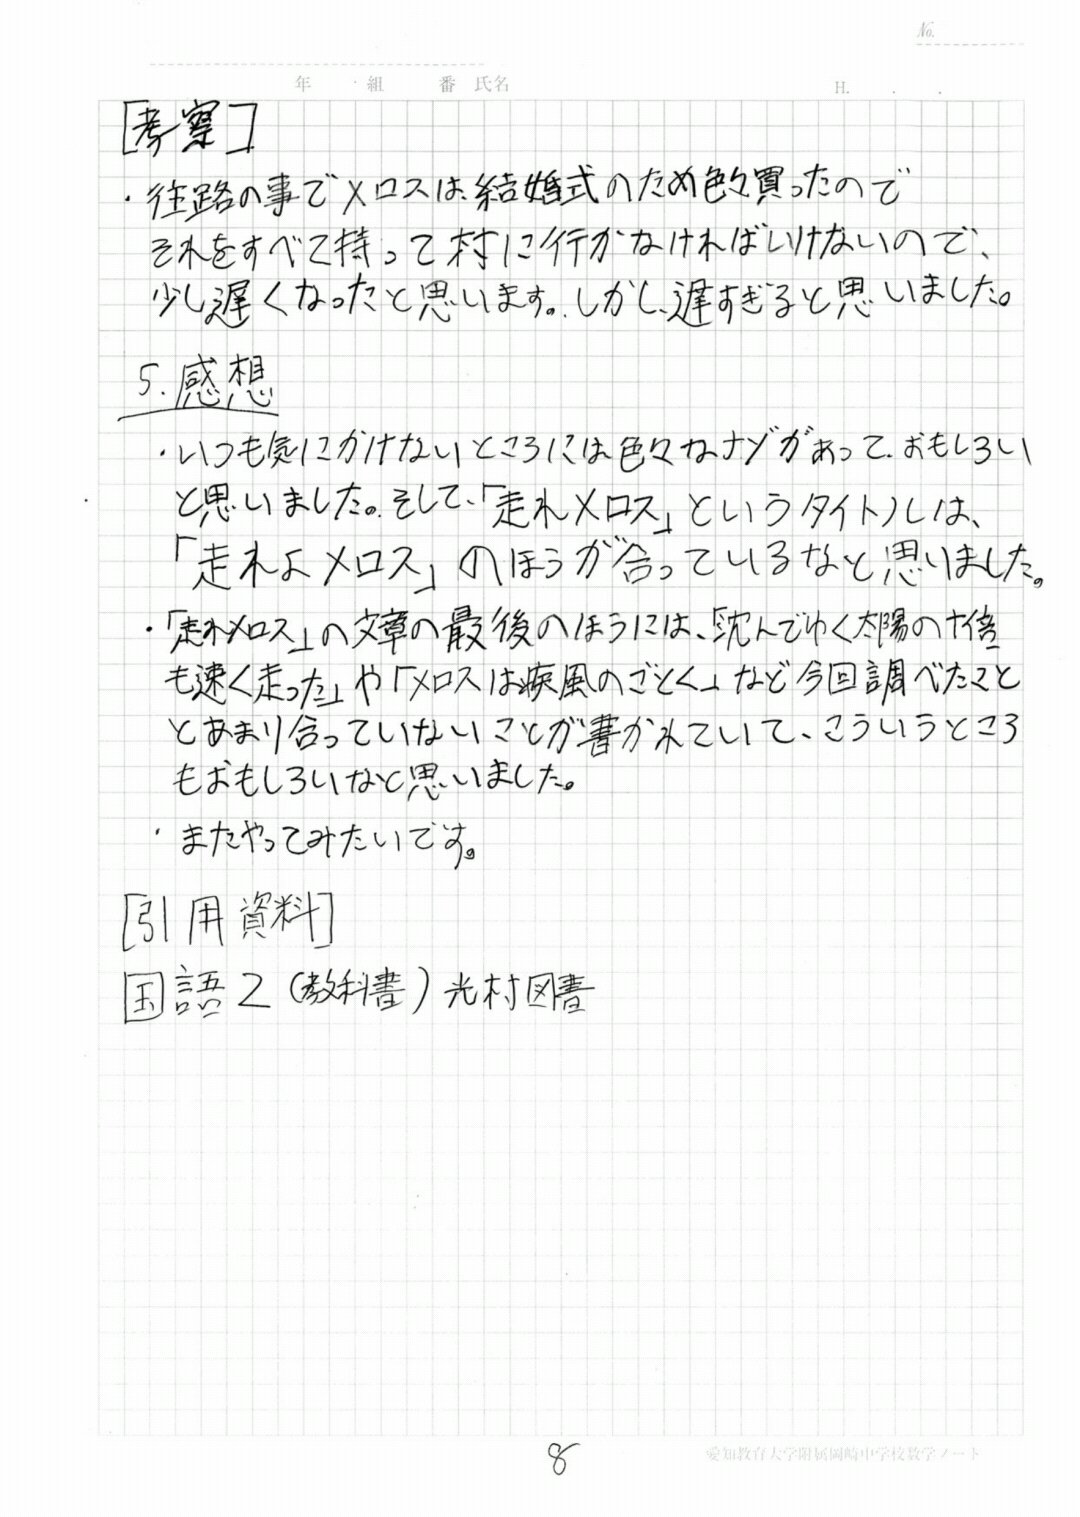 No.
年 組 番 氏名 H. . .
[考察]
・往路の事でメロスは、結婚式のため色々買ったので
それをすべて持って村に行かなければいけないので、
少し遅くなったと思います。しかし、遅すぎると思いました。
5. 感想
・いつも気にかけないところには色々なナゾがあって、おもしろい
と思いました。そして、「走れメロス」というタイトルは、
「走れよメロス」のほうが合っているなと思いました。
・「走れメロス」の文章の最後のほうには、「沈んでゆく太陽の十倍
も速く走った」や「メロスは疾風のごとく」など今回調べたこと
とあまり合っていないことが書かれていて、こういうところ
もおもしろいなと思いました。
・またやってみたいです。
[引用資料]
国語2(教科書)光村図書
8
愛知教育大学附属岡崎中学校数学ノート